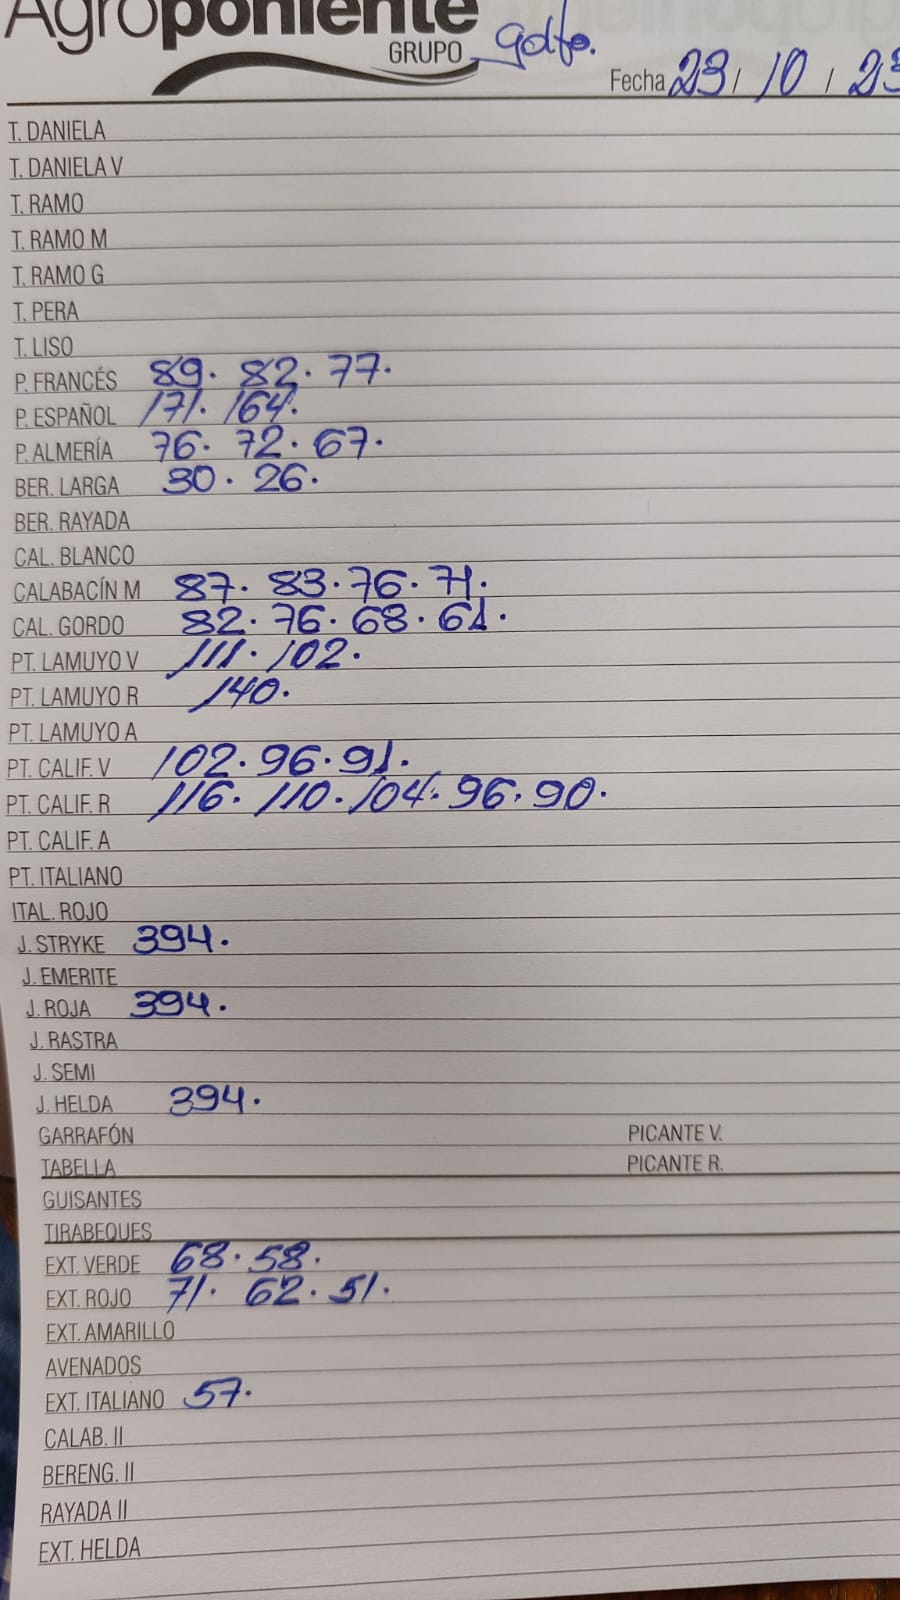 Agroponiente
GRUPO Golfo.
Fecha 23/ 10 / 23
T. DANIELA
T. DANIELA V
T. RAMO
T. RAMO M
T. RAMO G
T. PERA
T. LISO
P. FRANCÉS 89. 82. 77.
P. ESPAÑOL 171. 164.
P. ALMERÍA 76. 72. 67.
BER. LARGA 30. 26.
BER. RAYADA
CAL. BLANCO
CALABACÍN M 87. 83. 76. 71.
CAL. GORDO 82. 76. 68. 61.
PT. LAMUYO V 111. 102.
PT. LAMUYO R 140.
PT. LAMUYO A
PT. CALIF. V 102. 96. 91.
PT. CALIF. R 116. 110. 104. 96. 90.
PT. CALIF. A
PT. ITALIANO
ITAL. ROJO
J. STRYKE 394.
J. EMERITE
J. ROJA 394.
J. RASTRA
J. SEMI
J. HELDA 394.
GARRAFÓN PICANTE V.
TABELLA PICANTE R.
GUISANTES
TIRABEQUES
EXT. VERDE 68. 58.
EXT. ROJO 71. 62. 51.
EXT. AMARILLO
AVENADOS
EXT. ITALIANO 57.
CALAB. II
BERENG. II
RAYADA II
EXT. HELDA